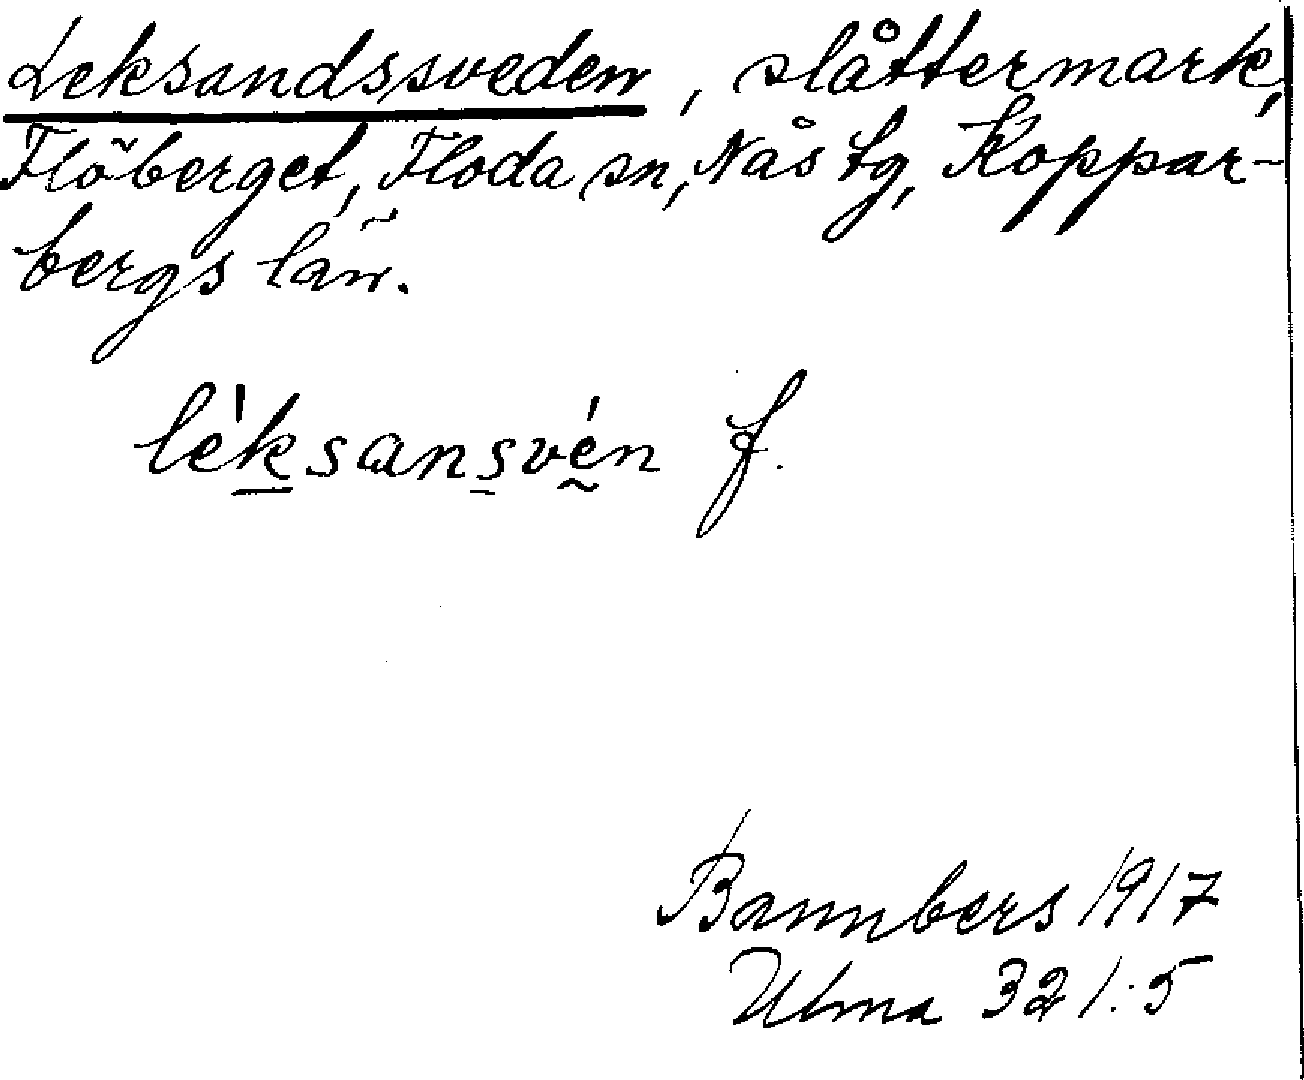 Leksandssveden, slåttermark,
Flöberget, Floda sn, Nås tg, Koppar-
bergs län.
lèksansvén f.
Bannbers 1917
Ulma 321:5